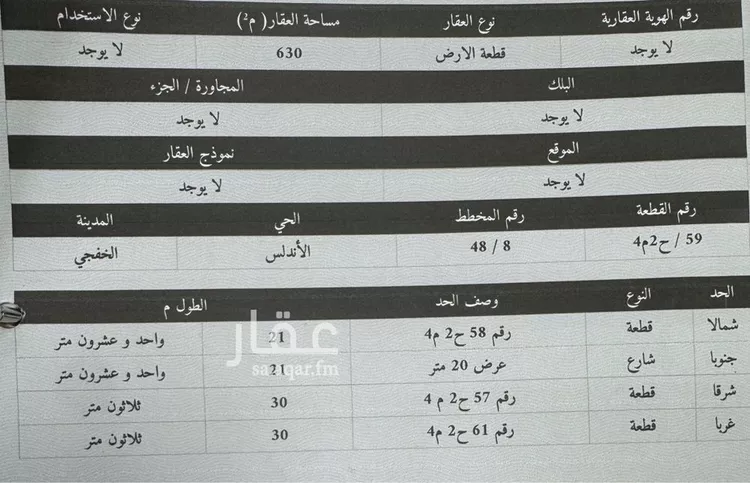 رقم الهوية العقارية نوع العقار مساحة العقار( م²) نوع الاستخدام
لا يوجد قطعة الارض 630 لا يوجد
البلك المجاورة / الجزء
لا يوجد لا يوجد
الموقع نموذج العقار
لا يوجد لا يوجد
رقم القطعة رقم المخطط الحي المدينة
59 / ح2م4 48 / 8 الأندلس الخفجي
الحد النوع وصف الحد الطول م
شمالا قطعة رقم 58 ح2 م4 21 واحد و عشرون متر
جنوبا شارع عرض 20 متر 21 واحد و عشرون متر
شرقا قطعة رقم 57 ح2 م 4 30 ثلاثون متر
غربا قطعة رقم 61 ح2 م4 30 ثلاثون متر
عقار
sa.aqar.fm